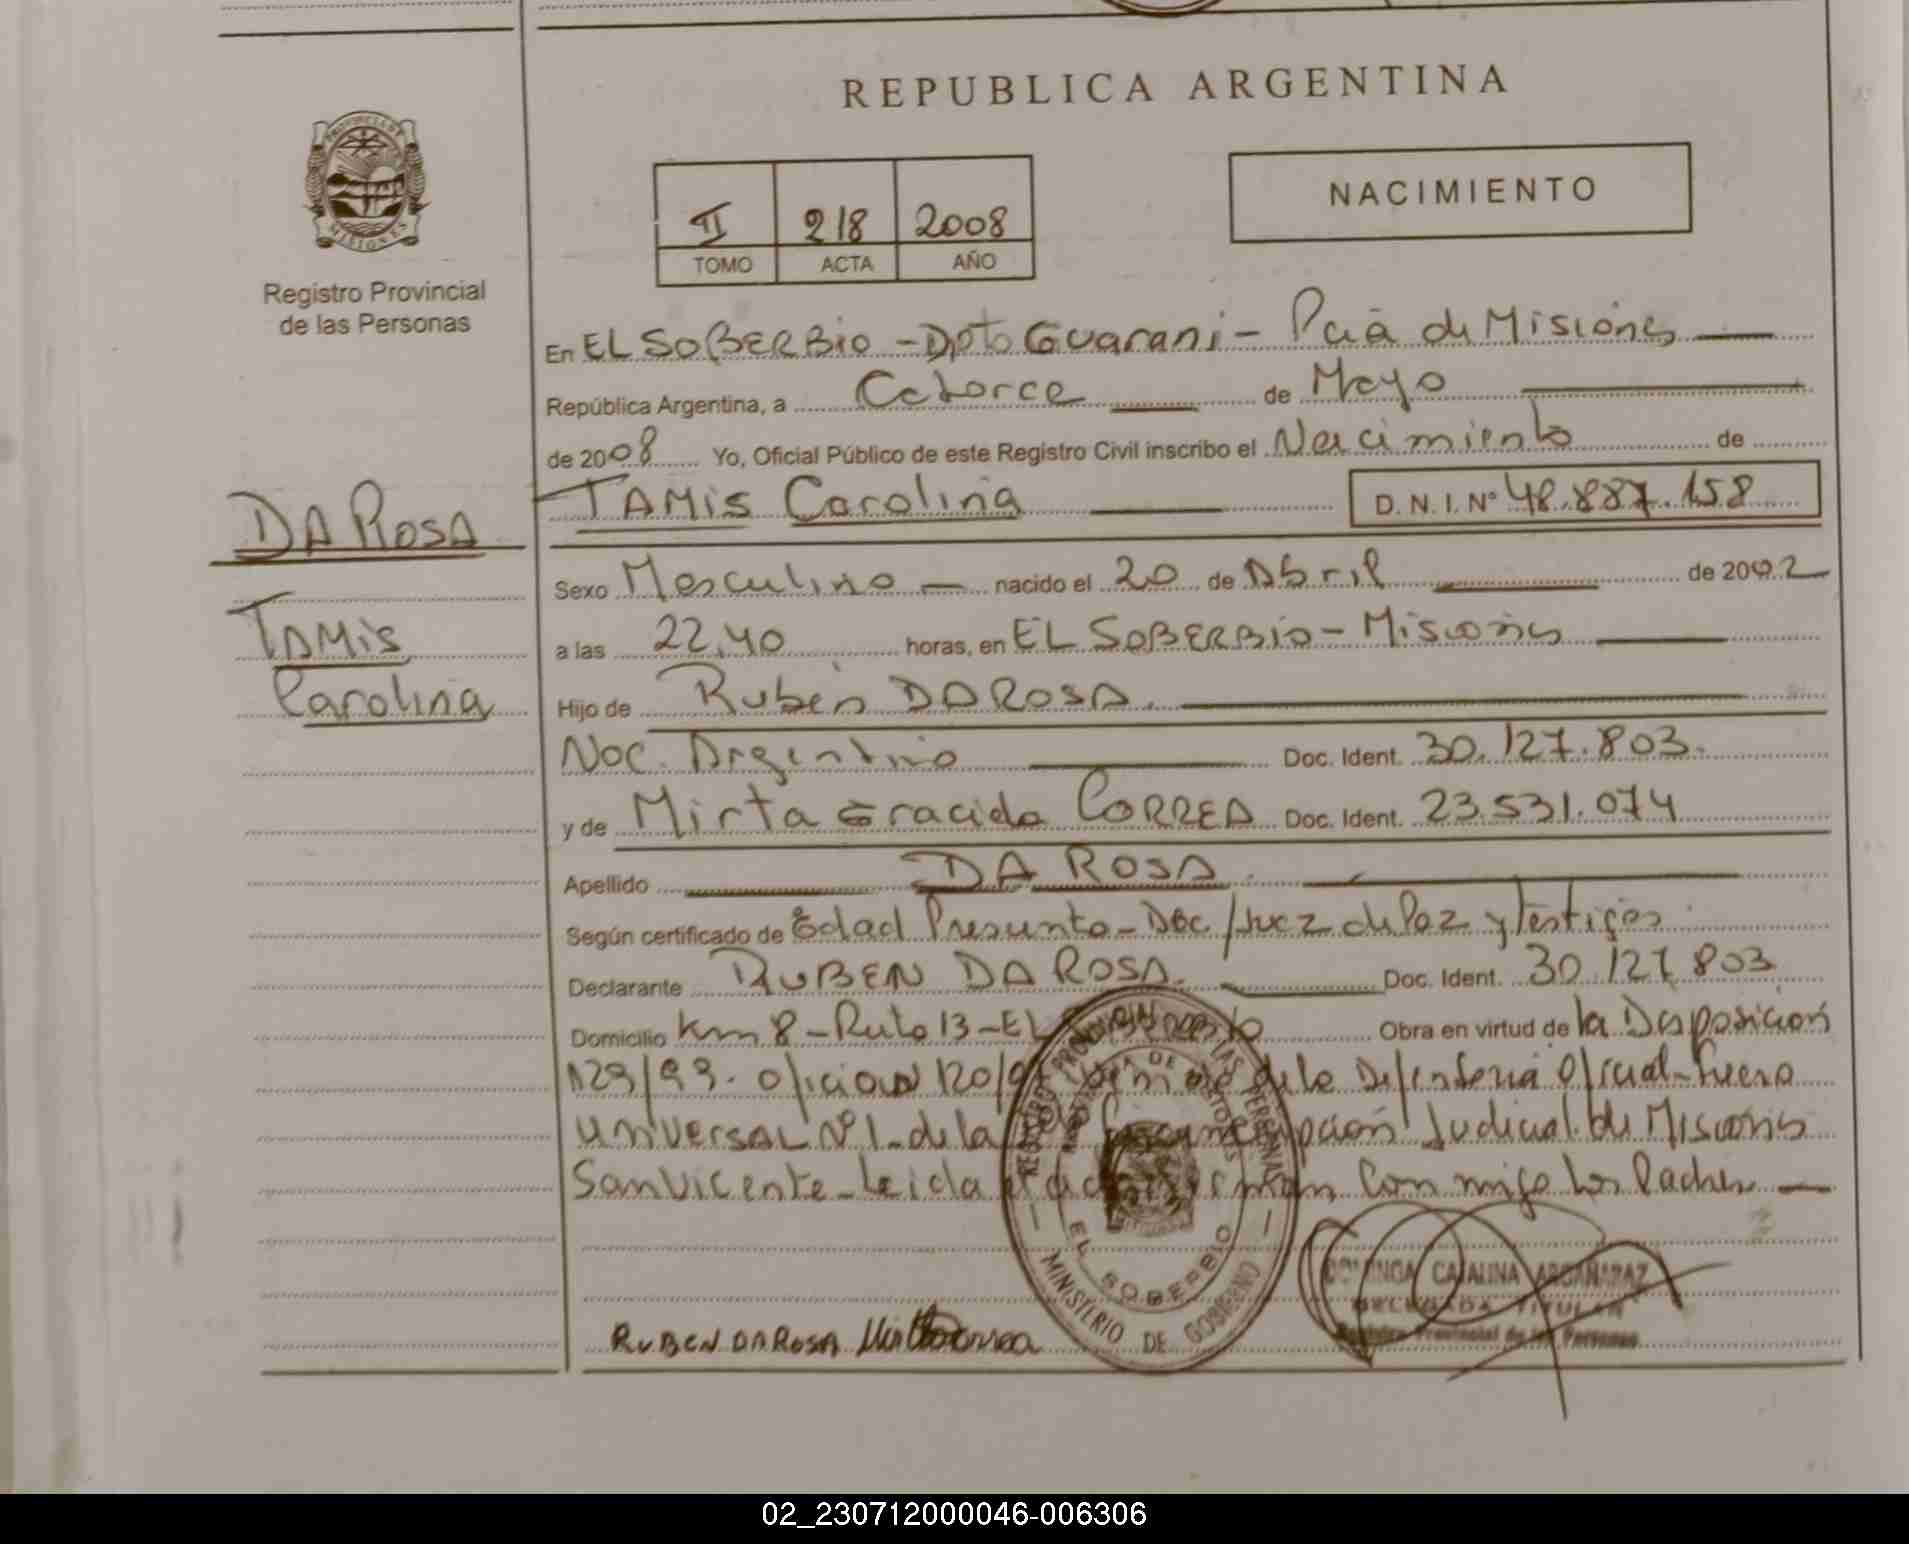 REPUBLICA ARGENTINA
PROVINCIA DE
MISIONES
Registro Provincial
de las Personas
II 218 2008
TOMO ACTA AÑO
NACIMIENTO
En EL SOBERBIO - Dpto Guarani - Pcia de Misiones
República Argentina, a Catorce de Mayo
de 2008 Yo, Oficial Público de este Registro Civil inscribo el Nacimiento de
DA ROSA
TAMIS Carolina D.N.I. Nº 48.887.158
Sexo Masculino nacido el 20 de Abril de 2002
TAMIS
Carolina
a las 22,40 horas, en EL SOBERBIO - Misiones
Hijo de Ruben DA ROSA
Nac. Argentino Doc. Ident. 30.127.803.
y de Mirta Gracida CORREA Doc. Ident. 23.531.074
Apellido DA ROSA
Según certificado de Edad Presunta - Doc/Juez de Paz y Testigos
Declarante RUBEN DA ROSA. Doc. Ident. 30.127.803
Domicilio Km 8 - Ruta 13 - EL Obra en virtud de la Disposicion
129/99. Oficio Nº 120/ de la Defensoria Oficial - Fuero
Universal Nº 1 - de la Judicial de Misiones
San Vicente - Leida Conmigo los Padres
REGISTRO PROVINCIAL DE LAS PERSONAS
MINISTERIO DE GOBIERNO
EL SOBERBIO
RUBEN DA ROSA Mirta Correa
CATALINA ARGAÑARAZ
DELEGADA TITULAR
Registro Provincial de las Personas
02_230712000046-006306